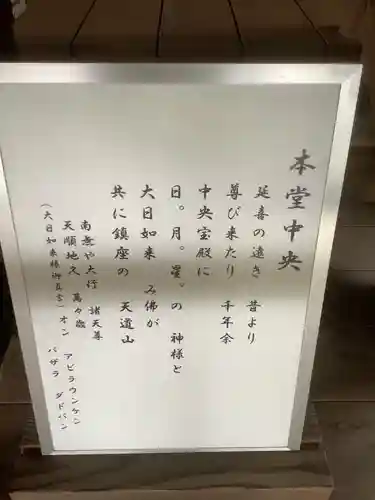 本堂中央
延喜の遠き 昔より
尊び来たり 千年余
中央宝殿に
日。月。星。の 神様と
大日如来 み佛が
共に鎮座の 天道山
南無や大行 諸天尊
天順地久 萬々歳
(大日如来様御真言)オン アビラウンケン
バザラ ダドバン